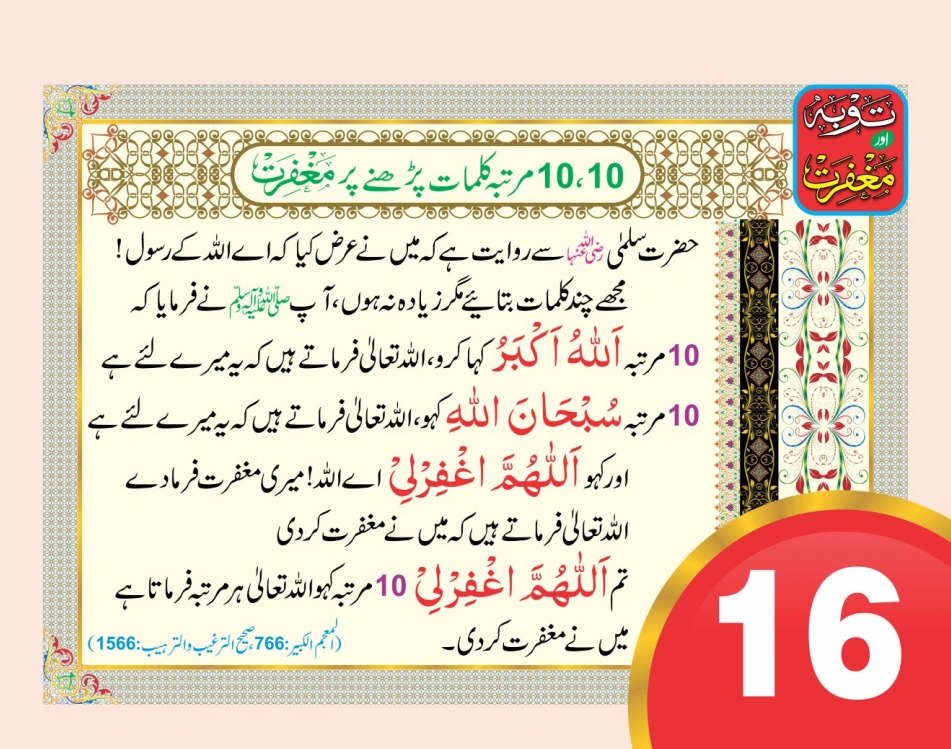 توبہ
اور
مغفرت
10،10 مرتبہ کلمات پڑھنے پر مغفرت
حضرت سلمٰی رضی اللہ عنہا سے روایت ہے کہ میں نے عرض کیا کہ اے اللہ کے رسول!
مجھے چند کلمات بتائیے مگر زیادہ نہ ہوں، آپ صلی اللہ علیہ وآلہ وسلم نے فرمایا کہ
10 مرتبہ اَللّٰهُ اَكْبَرُ کہا کرو، اللہ تعالیٰ فرماتے ہیں کہ یہ میرے لئے ہے
10 مرتبہ سُبْحَانَ اللّٰهِ کہو، اللہ تعالیٰ فرماتے ہیں کہ یہ میرے لئے ہے
اور کہو اَللّٰهُمَّ اغْفِرْلِيْ اے اللہ! میری مغفرت فرما دے
اللہ تعالیٰ فرماتے ہیں کہ میں نے مغفرت کر دی
تم اَللّٰهُمَّ اغْفِرْلِيْ 10 مرتبہ کہو اللہ تعالیٰ ہر مرتبہ فرماتا ہے
میں نے مغفرت کر دی۔ (المعجم الکبیر:766، صحیح الترغیب والترہیب:1566)
16